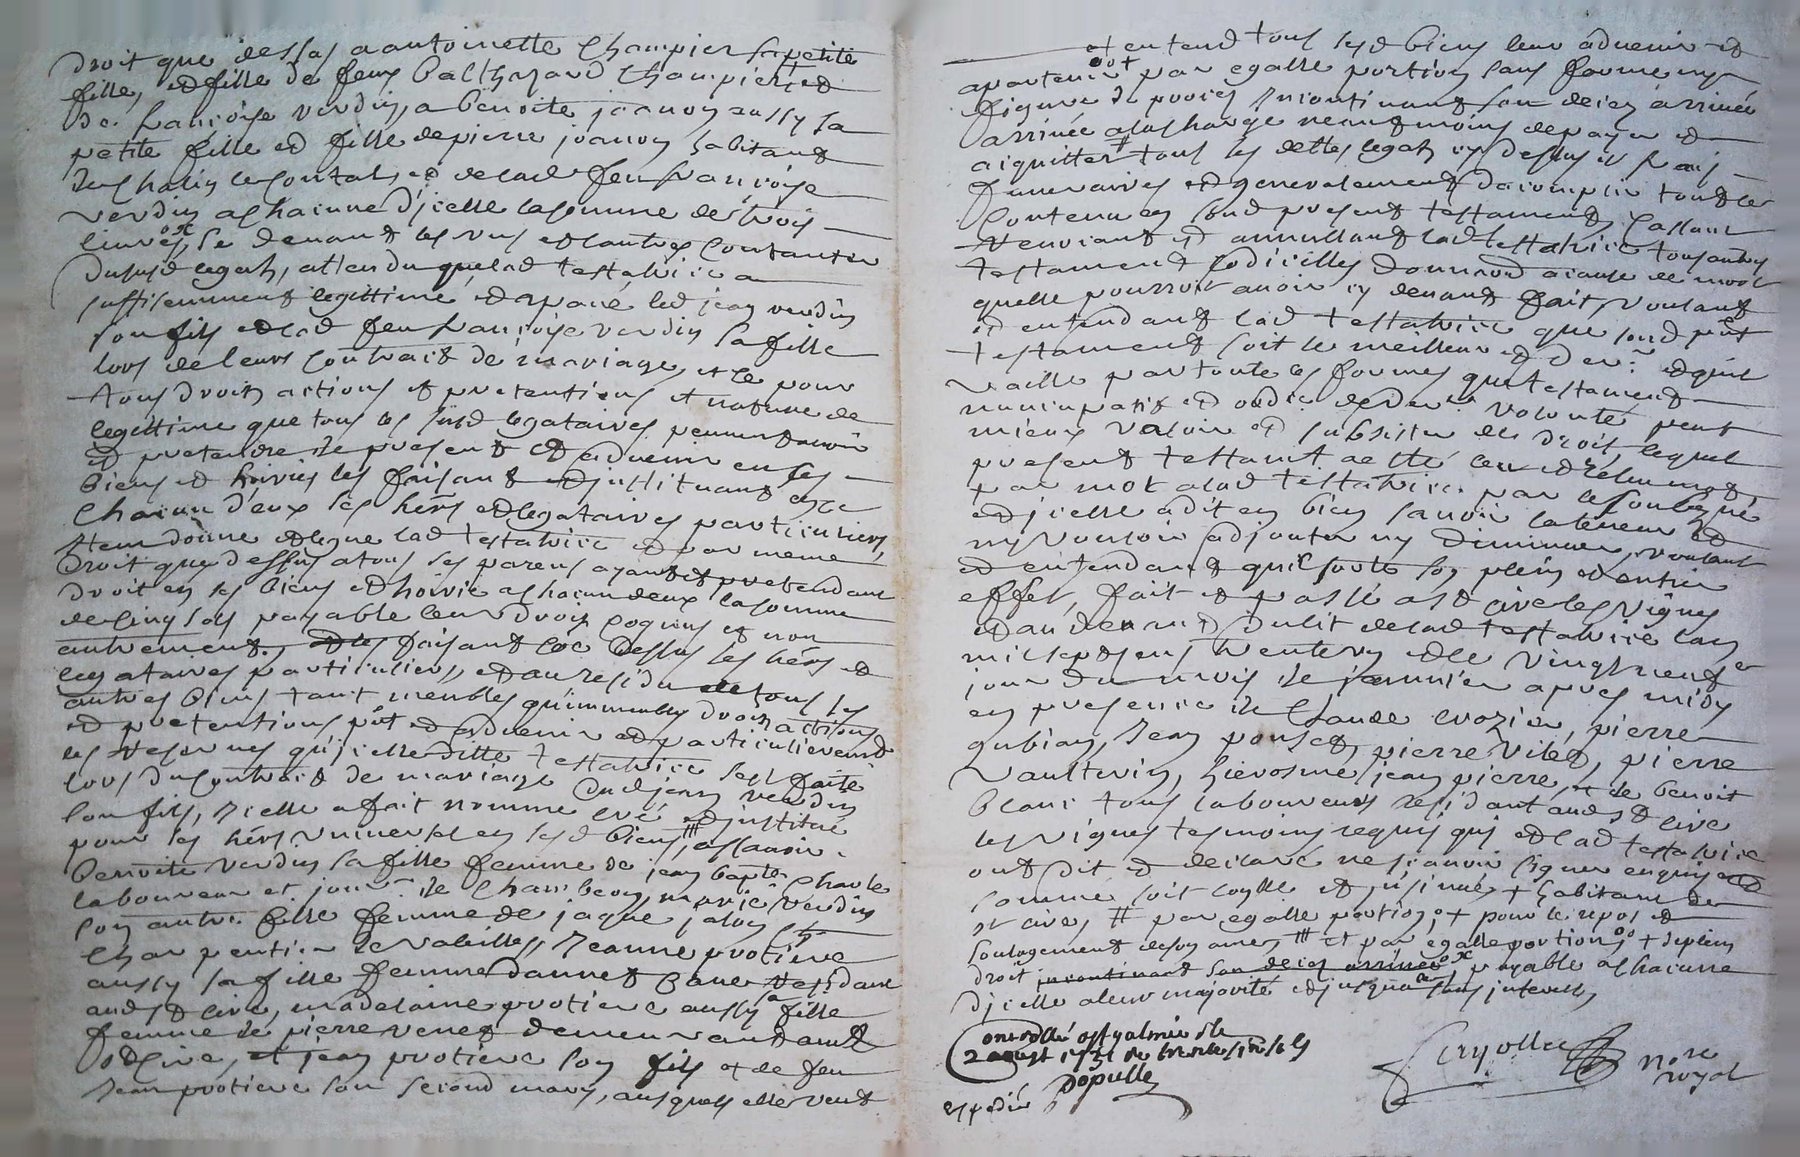 droit que dessus a antoinette Champier sa petite
fille, et fille de feus balthazard Champier, et
de françoise verdin, a benoite joanon aussy sa
petite fille et fille de pierre joanon habitant
de et de lad feu françoise
verdin a chacune d'jcelle la somme de trois
livres, se devant les uns et les autres contanter
dususd legat, attendu que lad testatrice a
suffisemment legittimé et apané led jean verdin
son fils et lad feu françoise verdin sa fille
lors de leurs contract de mariage, et ce pour
tous droits actions et pretentions et nature de
legittime que tous les susd legataires peuvent avoir
et pretendre de present et advenir en ses
biens et hoiries les faisant et jnstituant
chacun d'eux ses hers et legataires particuliers,
Jtem donne et legue lad testatrice et par meme
droit que dessus a tous ses parens ayant et pretendant
droit en ses biens et hoirie a chacun deux la somme
de cinq sols payable leur droit cognus et non
autrement, et les faisant ses hers et
legataires particuliers, et au residu de tous ses
autres biens tant meubles qu'immeubles droits actions
et pretentions pnt et advenir et particulierement
les reserves qu'jcelle ditte testatrice sest faite
lors du contract de mariage dud jean verdin
son fils, jcelle a fait nommé créé et jnstitué
pour ses hers universel en sesd biens, ascavoir
benoite verdin sa fille femme de jean bapte Charle
laboureur et jour de Chambeon, marie verdin
son autre fille femme de jaque jaloy
Charpentier de valeille, Jeanne protiere
aussy sa fille femme dannet residant
aud st cire, madelaine protiere aussy sa fille
femme de pierre venet demeurant aud
st cire, et jean protiere son fils et de feu
jean protiere son second mary, ausquels elle veut
et entend tous sesd biens leur advenir et
apartenir par egalle portion sans forme ny
figure de procès jncontinant son deces arrivée
arrivée a la charge neantmoins de payer et
aiquitter tous les dettes legats cy dessus et frais
funeraires et generalement d'acomplir tout le
contenu en sond present testament, Cassant
revocant et annullant lad testatrice tous autres
testament codicilles donnaon a cause de mort
quelle pourroit avoir cy devant fait, voulant
et entendant lad testatrice que sond pnt
testament soit le meilleur et dernr et qu'il
vaille par toute les formes que testament
nuncupatif et ordre de dernr volonté peut
mieux valoir et subsister de droit, lequel
present testamt a esté leu et releu mot
par mot a lad testatrice par le soubsigné
et jcelle a dit en bien scavoir la teneur et
ny vouloir adjouter ny diminuer, voulant
et entendant qu'il sorte son plein et entier
effet, fait et passé a st cire les vignes
et au devant du lit de lad testatrice lan
mil sept cens trente un et le vingt neuf
jour du mois de janvier apres midy
en presence de Claude crozier, pierre
gubian, jean ponset, pierre vilet, pierre
vaultrin, hierosme jean pierre, et de benoit
blanc tous laboureurs residant aud st cire
les vignes tesmoins requis qui et lad testatrice
ont dit et declaré ne scavoir signer enquis et
somme soit et jnsinué + habitant de
st cire, # par egalle portion, o+ pour le repos et
soulagement de son ame, ### et par egalle portion, oo + de plein
droit jncontinant son deces arrivée ox, payable a chacune
d'jcelle a leur majorité et jusqua sans jnterest,
Controllé a st galmier le
2 aoust 1731 Rr trente/1s/6d
Dopulle
expedié
Notre
royal